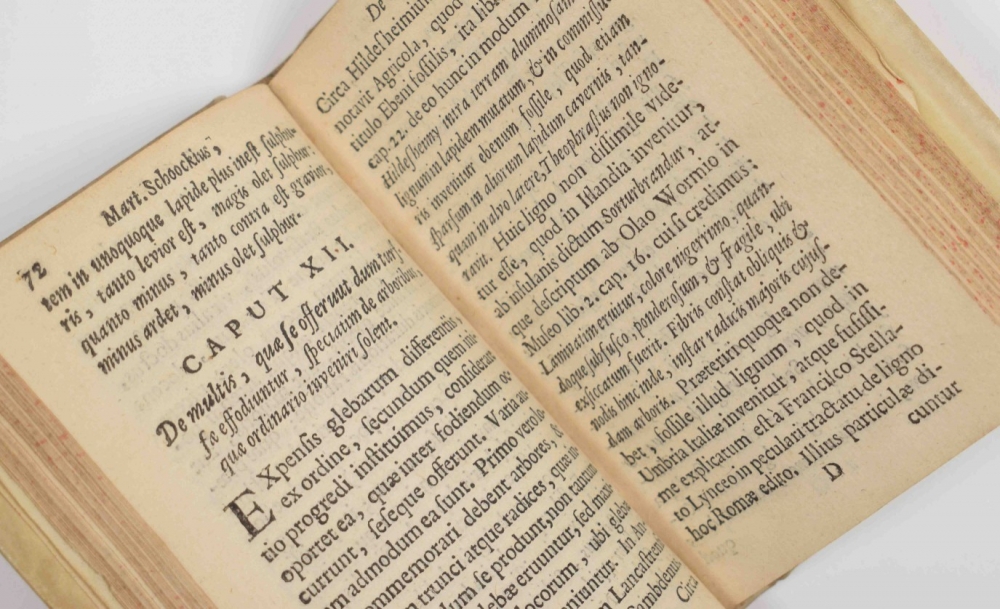 72
Mart. Schoockiï,
tem in unoquoque lapide plus inest sulphu-
ris, tanto levior est, magis olet sulphur:
quanto minus, tanto contra est gravior,
minus ardet, minus olet sulphur.
CAPUT XII.
De multis, quæ se offerunt dum turf
fæ effodiuntur, spectatim de arboribus,
quæ ordinario inveniri solent.
EXpensis glebarum differentiis
ex ordine, secundum quem insti
tio progredi instituimus, considerari
oportet ea, quæ inter fodiendum oc
currunt, seseque offerunt. Varia au-
admodum ea sunt. Primo verolo
commemorari debent arbores,
trunci atque radices, quæ
se produnt, non tantum
eruuntur, sed
locorum, ubi glebæ
In
Lancastrensi
Cambdenus
Circa
De
Circa Hildesheimium
notavit Agricola, quod
titulo Ebeni fossilis, ita
cap. 22. de eo hunc in modum
Hildeshemy juxta terram aluminosam
lignum in lapidem mutatum, & in commissu-
ris invenitur ebenum fossile, quod etiam
sparsum in aliorum lapidum cavernis, tan-
quam in alvo latere, Theophrastus non igno-
ravit.
Huic ligno non dissimile vide-
tur esse, quod in Islandia invenitur,
ab insulanis dictum Sorturbrandur, at-
que descriptum ab Olao Wormio in
Museo lib. 2. cap. 16. cui si credimus:
Laminatim eruitur, colore nigerrimo, quan-
doque subfusco, ponderosum, & fragile, ubi
exsiccatum fuerit. Fibris constat obliquis &
nodis hinc inde, instar radicis majoris cujus-
dam arboris. Præteriri quoque non de-
bet, fossile illud lignum, quod in
Umbria Italiæ invenitur, atque fusissi-
me explicatum est à Francisco Stella-
to Lynceo in peculiari tractatu de ligno
hoc Romæ edito. Illius particulæ di-
D
cuntur